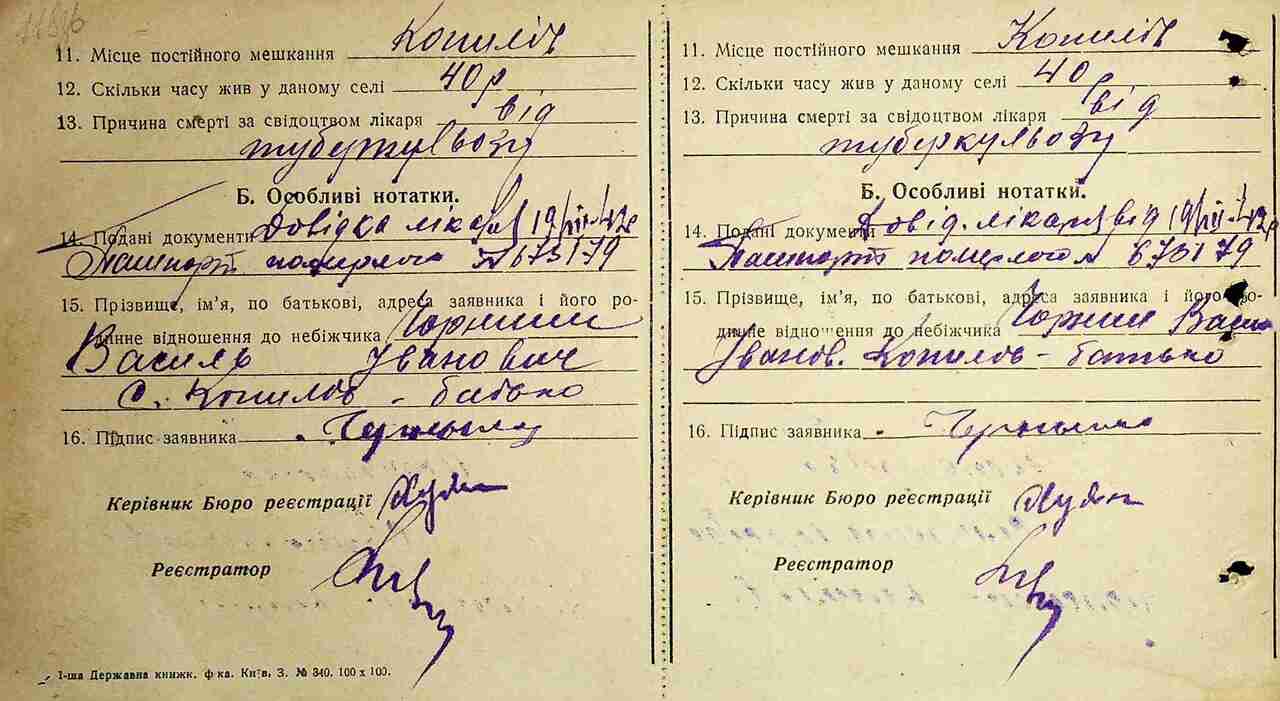 11. Місце постійного мешкання Копилів
12. Скільки часу жив у даному селі 40 р
13. Причина смерті за свідоцтвом лікаря від
туберкульозу
Б. Особливі нотатки.
14. Подані документи Довідка лікаря 19/III-42р
Пашпорт померлого № 673179
15. Прізвище, ім’я, по батькові, адреса заявника і його ро-
динне відношення до небіжчика
Василь Іванович
С. Копилов - батько
16. Підпис заявника
Керівник Бюро реєстрації
Реєстратор
І-ша Державна книжк. ф-ка. Київ, З. № 340. 100 х 100.
11. Місце постійного мешкання Копилів
12. Скільки часу жив у даному селі 40 р
13. Причина смерті за свідоцтвом лікаря від
туберкульозу
Б. Особливі нотатки.
14. Подані документи Довід. лікаря від 19/III-42р
Пашпорт померлого № 673179
15. Прізвище, ім’я, по батькові, адреса заявника і його ро-
динне відношення до небіжчика
Іванов. Копилов - батько
16. Підпис заявника
Керівник Бюро реєстрації
Реєстратор